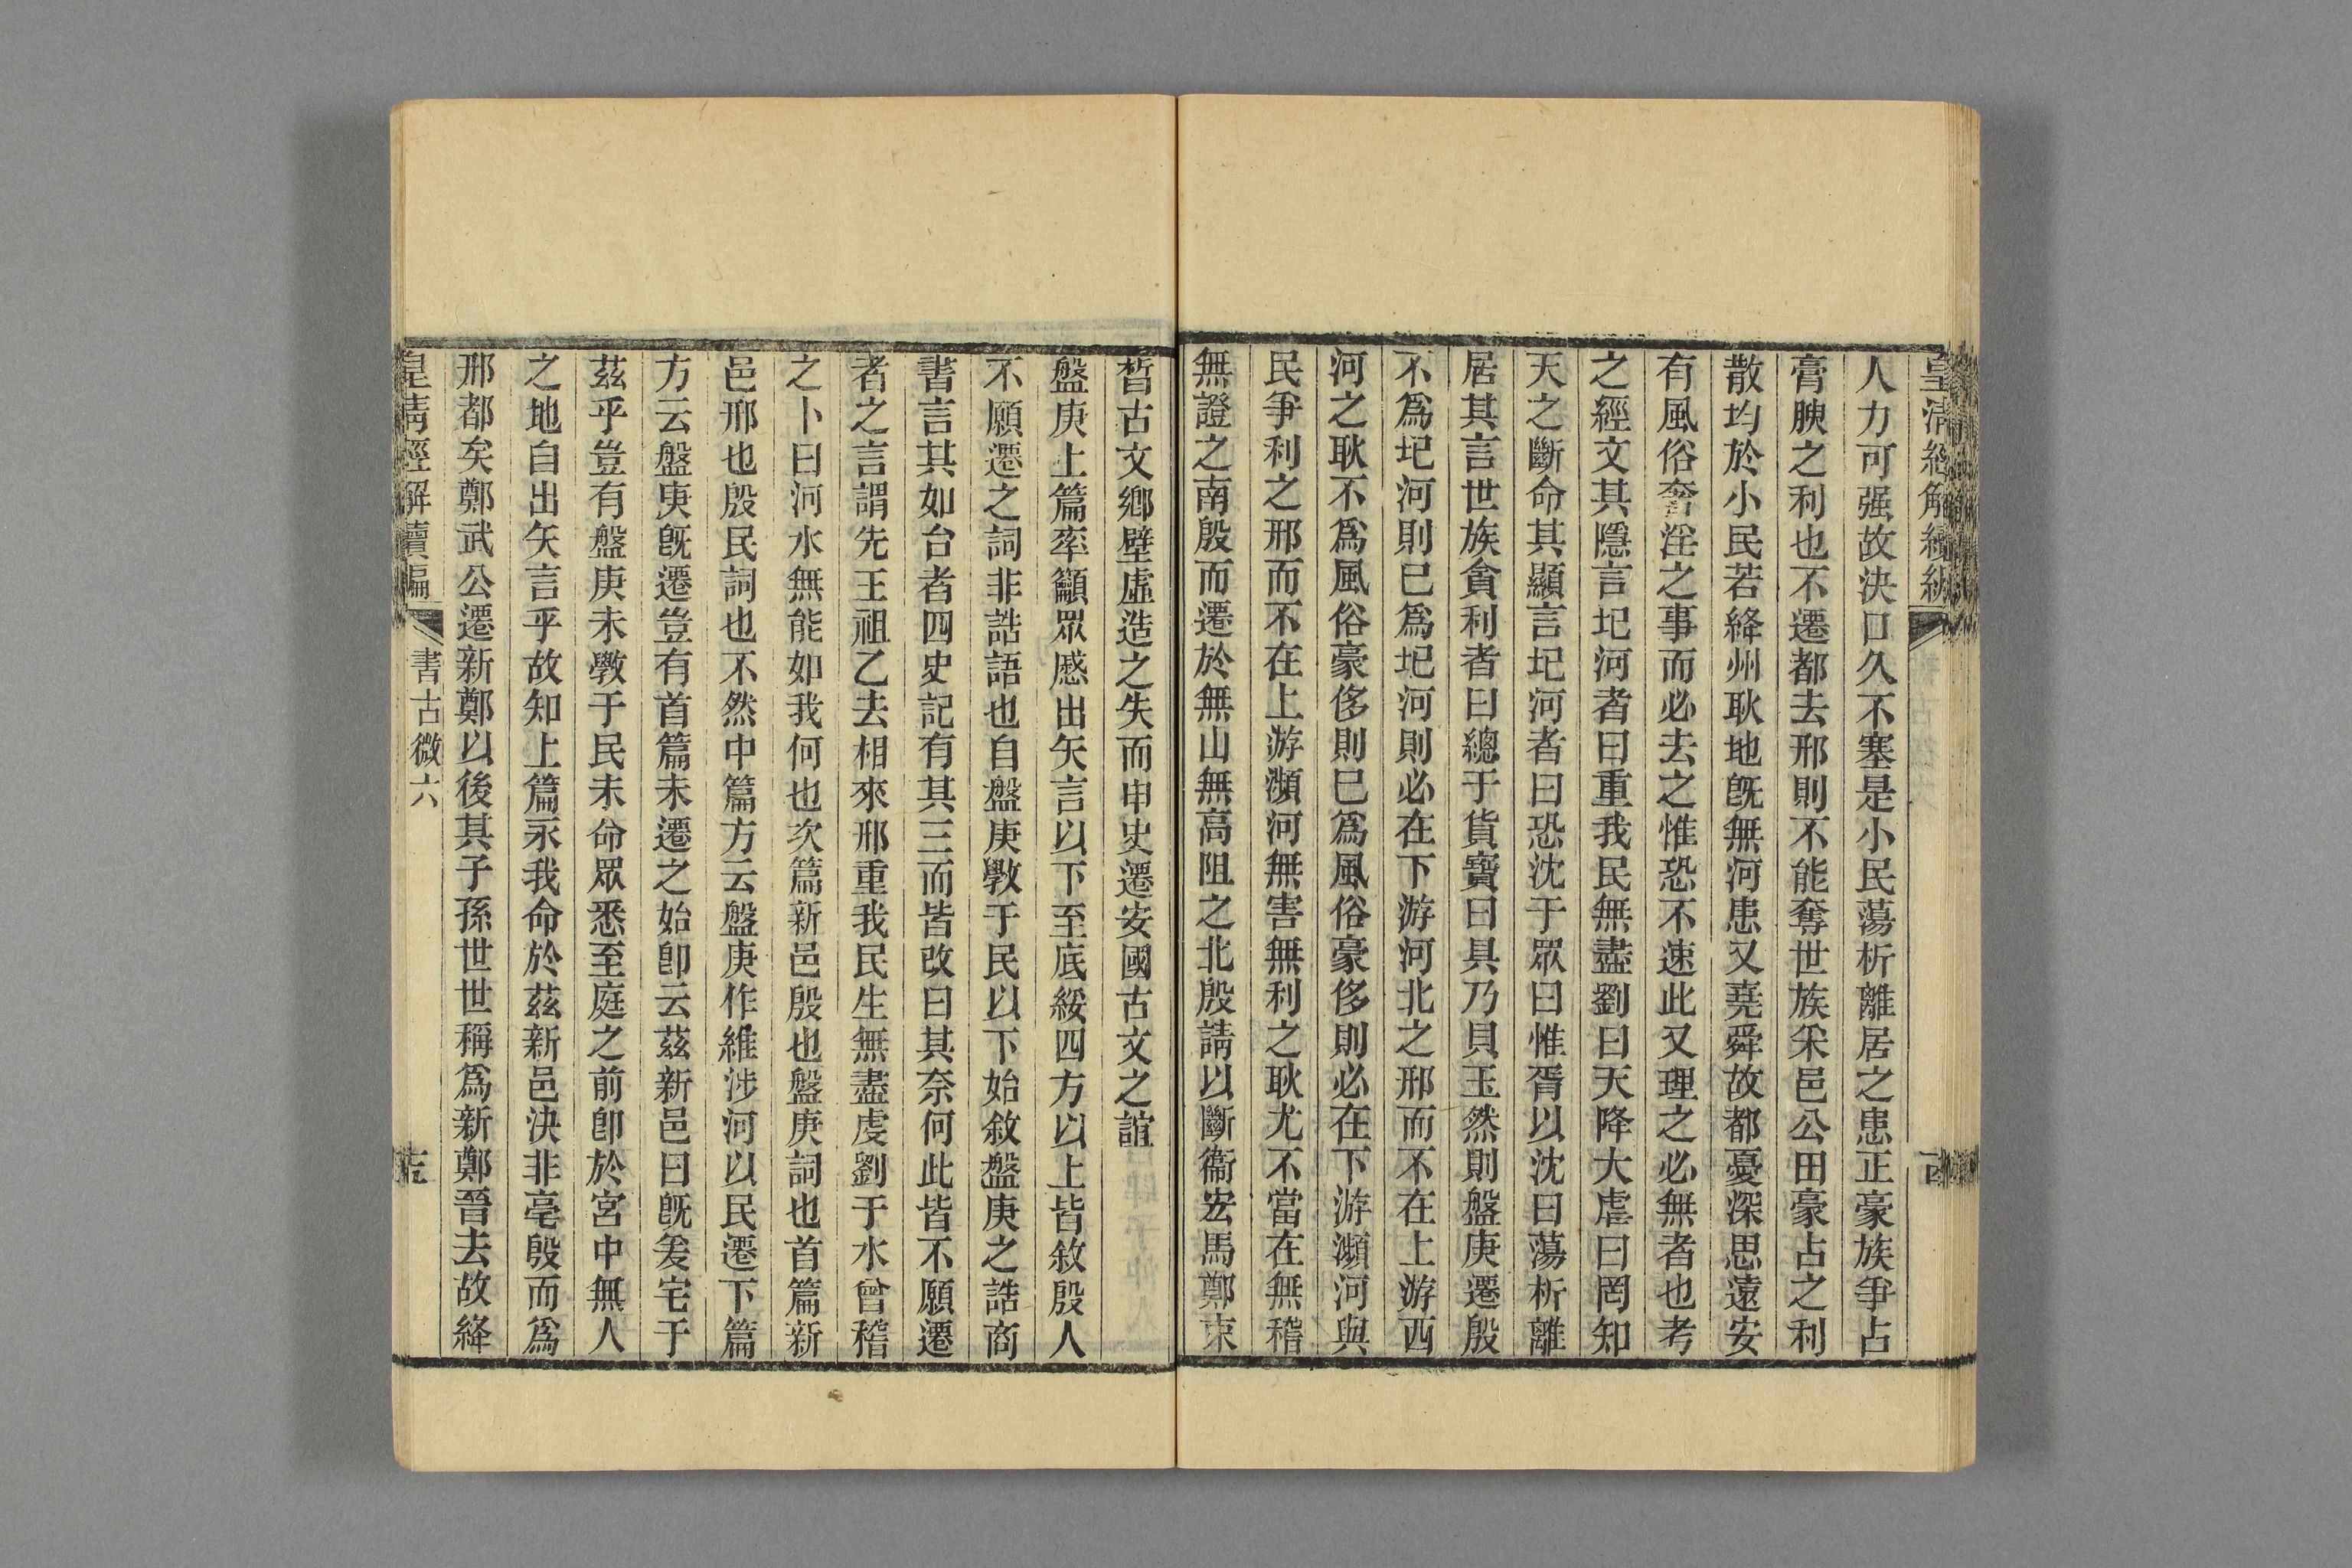 皇清經解續編
人力可强故決口久不塞是小民蕩析離居之患正豪族爭占
膏腴之利也不遷都去邢則不能奪世族采邑公田豪占之利
散均於小民若絳州耿地旣無河患又堯舜故都憂深思遠安
有風俗奢淫之事而必去之惟恐不速此又理之必無者也考
之經文其隱言圮河者曰重我民無盡劉曰天降大虐曰罔知
天之斷命其顯言圮河者曰恐沈于眾曰惟胥以沈曰蕩析離
居其言世族貪利者曰總于貨寶曰具乃貝玉然則盤庚遷殷
不爲圮河則已爲圮河則必在下游河北之邢而不在上游西
河之耿不爲風俗豪侈則巳爲風俗豪侈則必在下游瀕河與
民爭利之邢而不在上游瀕河無害無利之耿尤不當在無稽
無證之南殷而遷於無山無高阻之北殷請以斷衞宏馬鄭東
晳古文鄉壁虛造之失而申史遷安國古文之誼
盤庚上篇率籲眾慼出矢言以下至底綏四方以上皆敘殷人
不願遷之詞非誥語也自盤庚斆于民以下始敘盤庚之誥商
書言其如台者四史記有其三而皆改曰其奈何此皆不願遷
者之言謂先王祖乙去相來邢重我民生無盡虔劉于水曾稽
之卜曰河水無能如我何也次篇新邑殷也盤庚詞也首篇新
邑邢也殷民詞也不然中篇方云盤庚作維涉河以民遷下篇
方云盤庚旣遷豈有首篇未遷之始卽云茲新邑曰旣爰宅于
茲乎豈有盤庚未斆于民未命眾悉至庭之前卽於宮中無人
之地自出矢言乎故知上篇永我命於茲新邑決非亳殷而爲
邢都矣鄭武公遷新鄭以後其子孫世世稱爲新鄭晉去故絳
皇清經解續編
書古微六